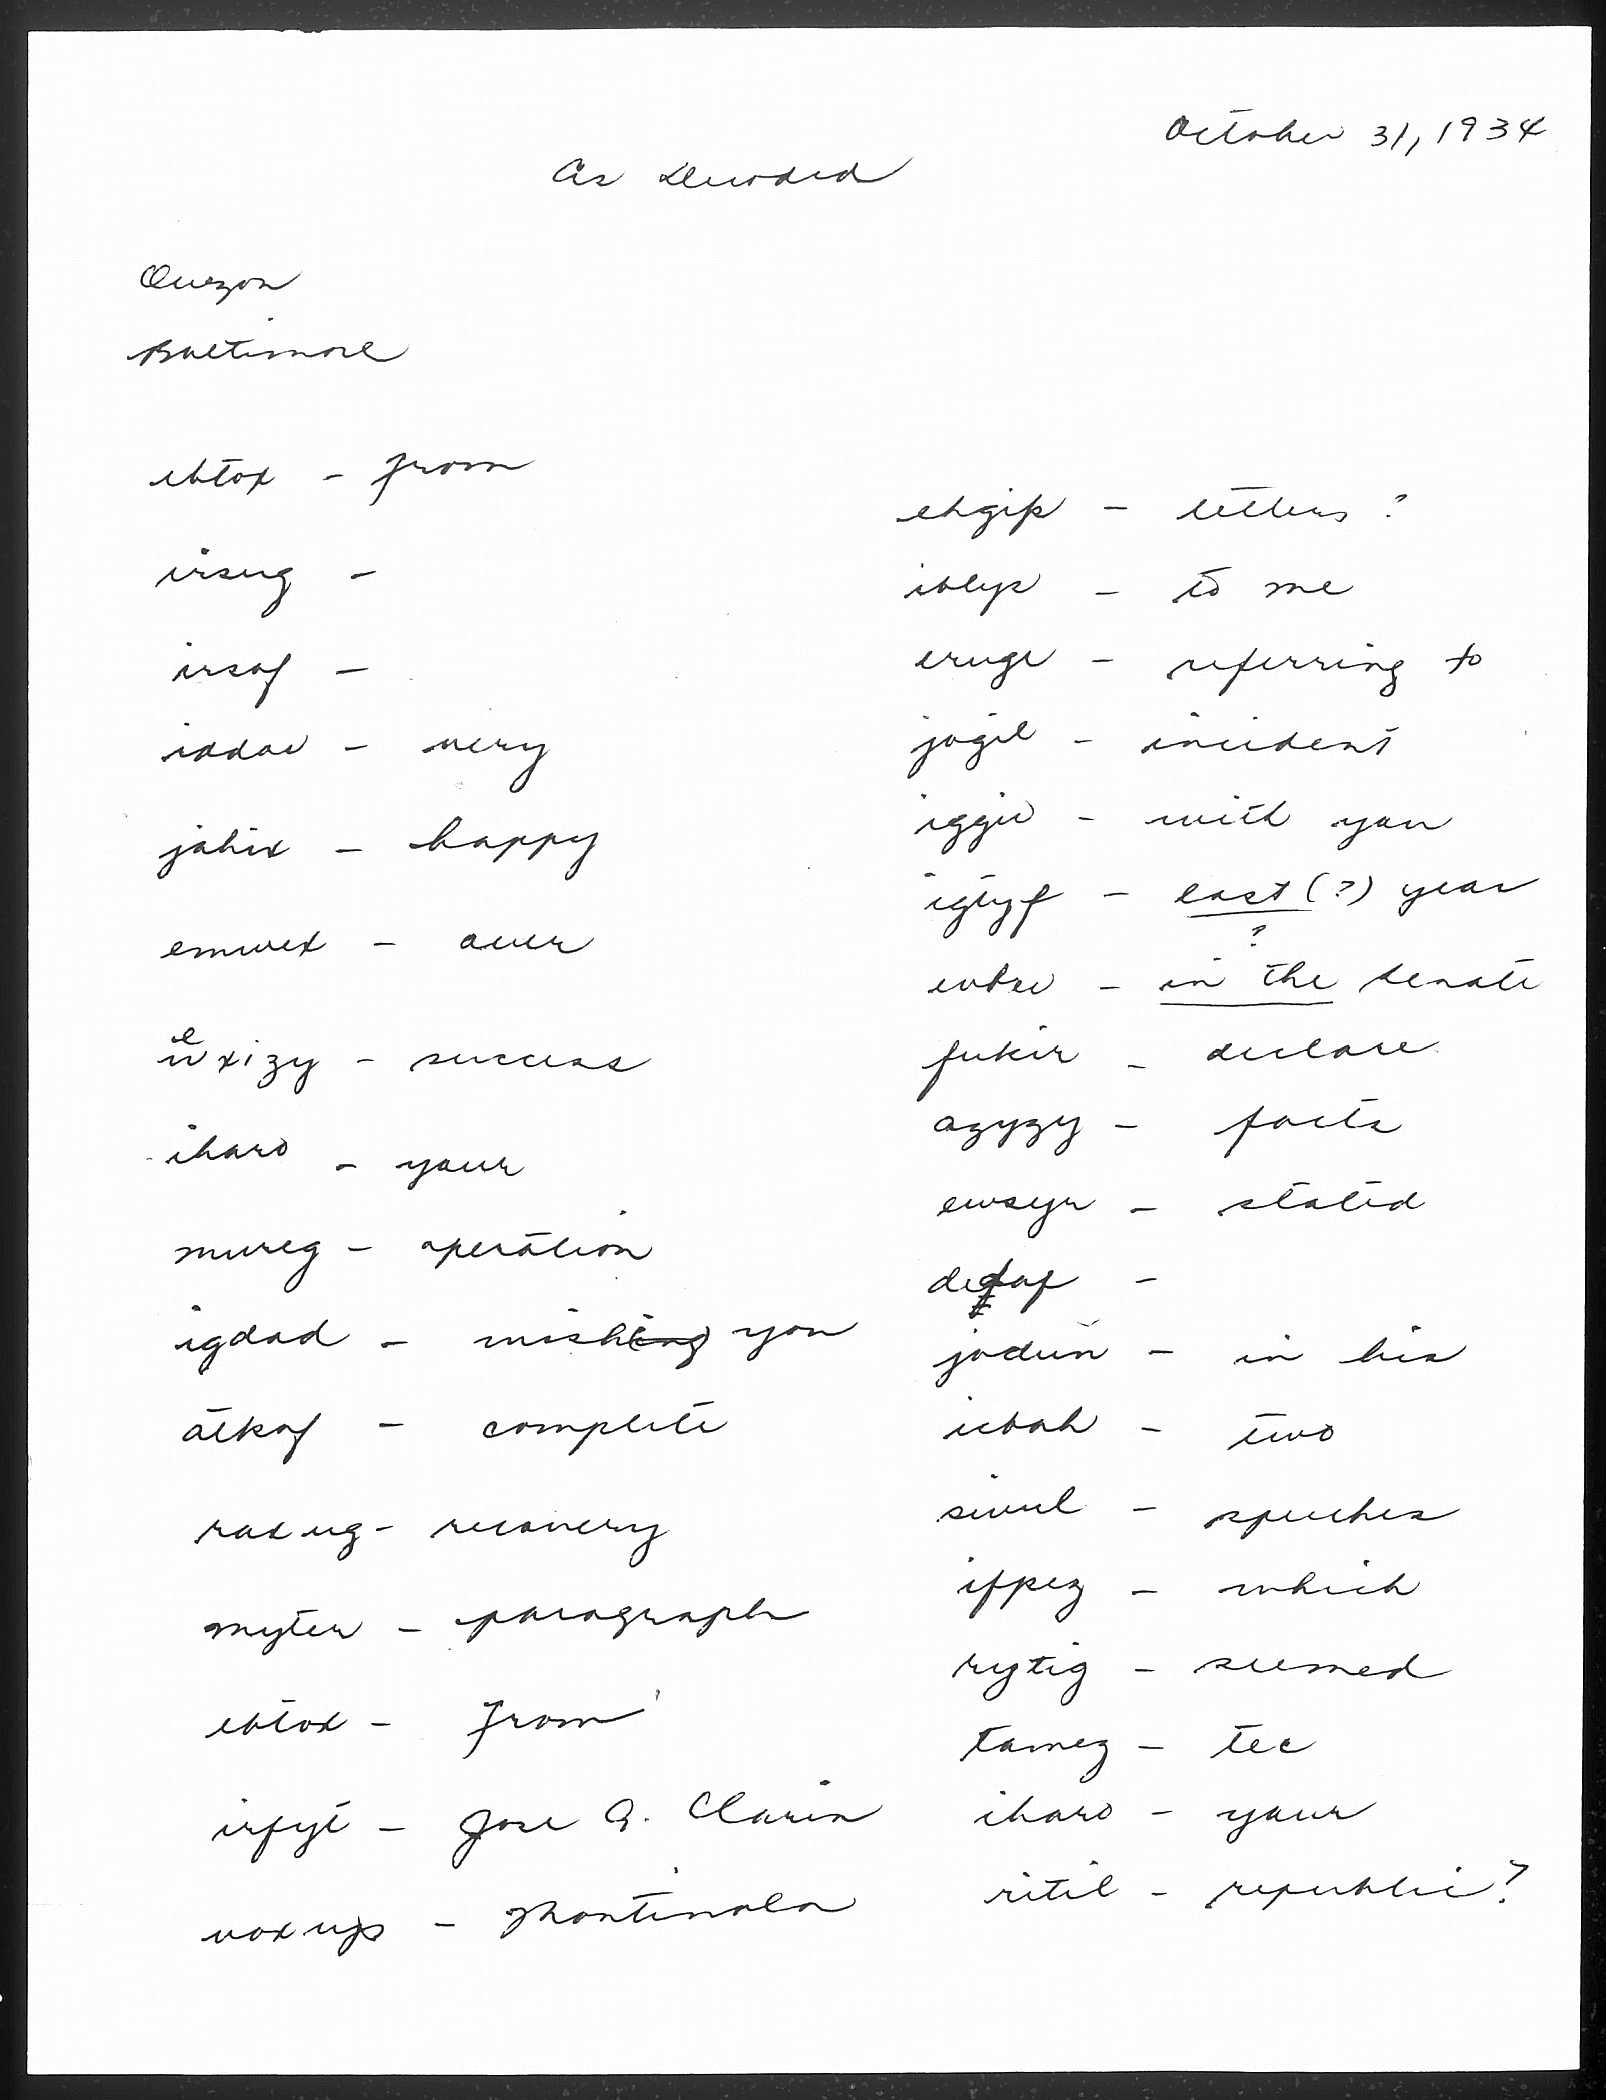 October 31, 1934
As Decoded
Quezon
Baltimore
ebtox - from
irsug -
irsaf -
iddav - very
jahix - happy
emwex - over
e
uxizy - success
iharo - your
mureg - operation
igdad - wishing you
atkaf - complete
raxug - recovery
myter - paragraph
ebtox - from
irfyt - Jose A. Clarin
voxup - Montinola
ehgip - letters ?
iblyp - to me
eruge - referring to
jogil - incident
iggiv - with you
igtyf - last (?) year
?
evbre - in the Senate
fukir - declare
azyzy - facts
ewsyr - stated
defap -
jodun - in his
icbah - two
sivul - speeches
ifpez - which
rytig - seemed
tamez - tec
iharo - your
ritil - republic?